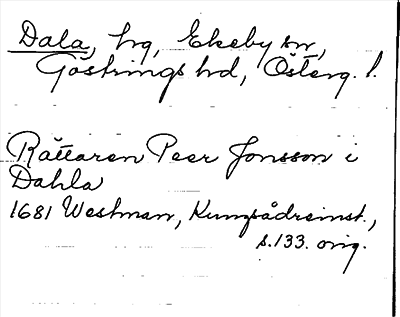 Dala, hg, Ekeby sn,
Göstrings hd, Österg. l.
Rättaren Peer Jonsson i
Dahla
1681 Westman, Kungsådreinst.,
s.133. orig.